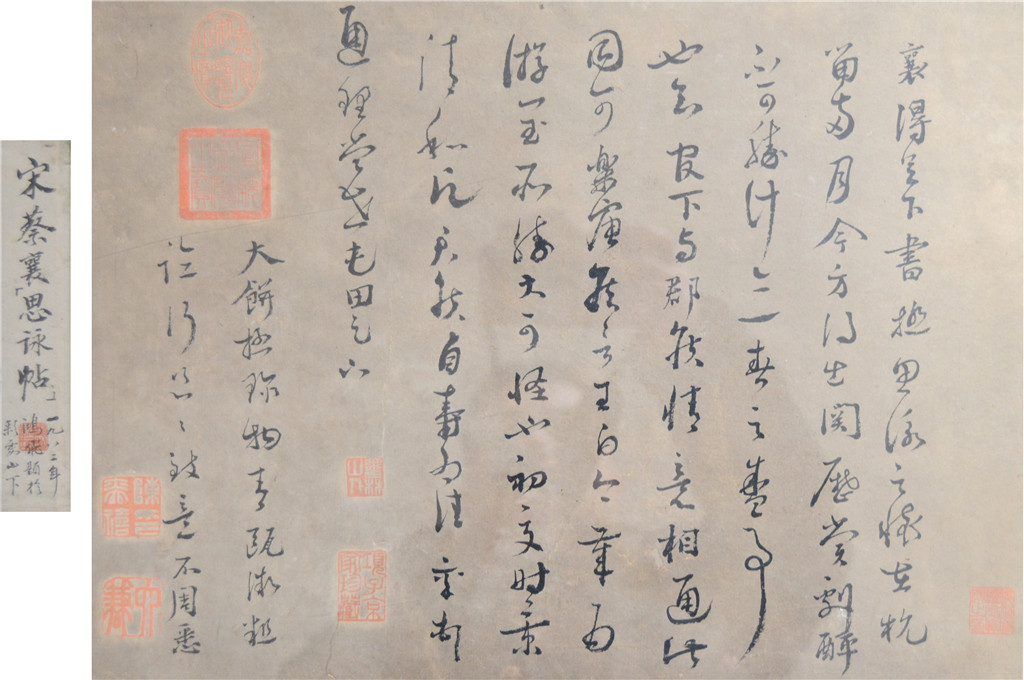 襄得足下書極思詠之懷在杭
留兩月今方得出関歷賞劇醉
不可勝計亦一春之盛事
也知官下与郡侯情意相通此
固可樂唐侯言王白今歲為
游閏所勝大可怪也初夏时景
清和願君侯自壽為佳襄頓
通理當世屯田足下
大餅極珍物青甌微麤
臨行匆〻致意不周悉
項子京家珍藏
宋蔡襄「思詠帖」
一九八年
鴻飛題於
山下